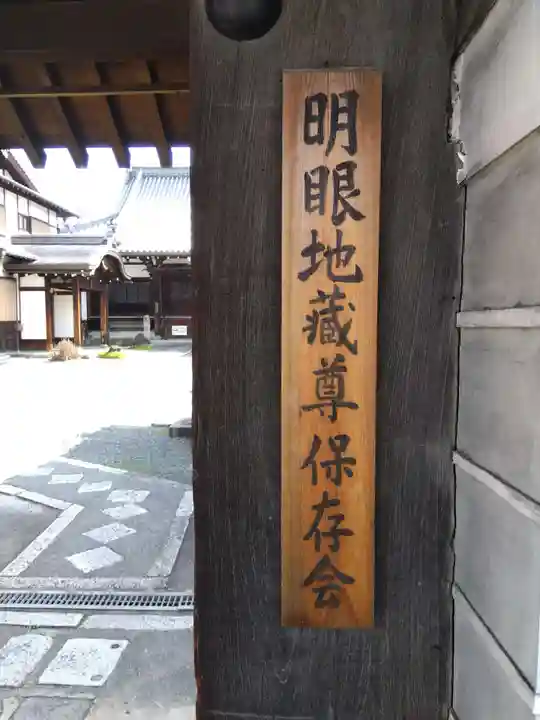 明眼地蔵尊保存会